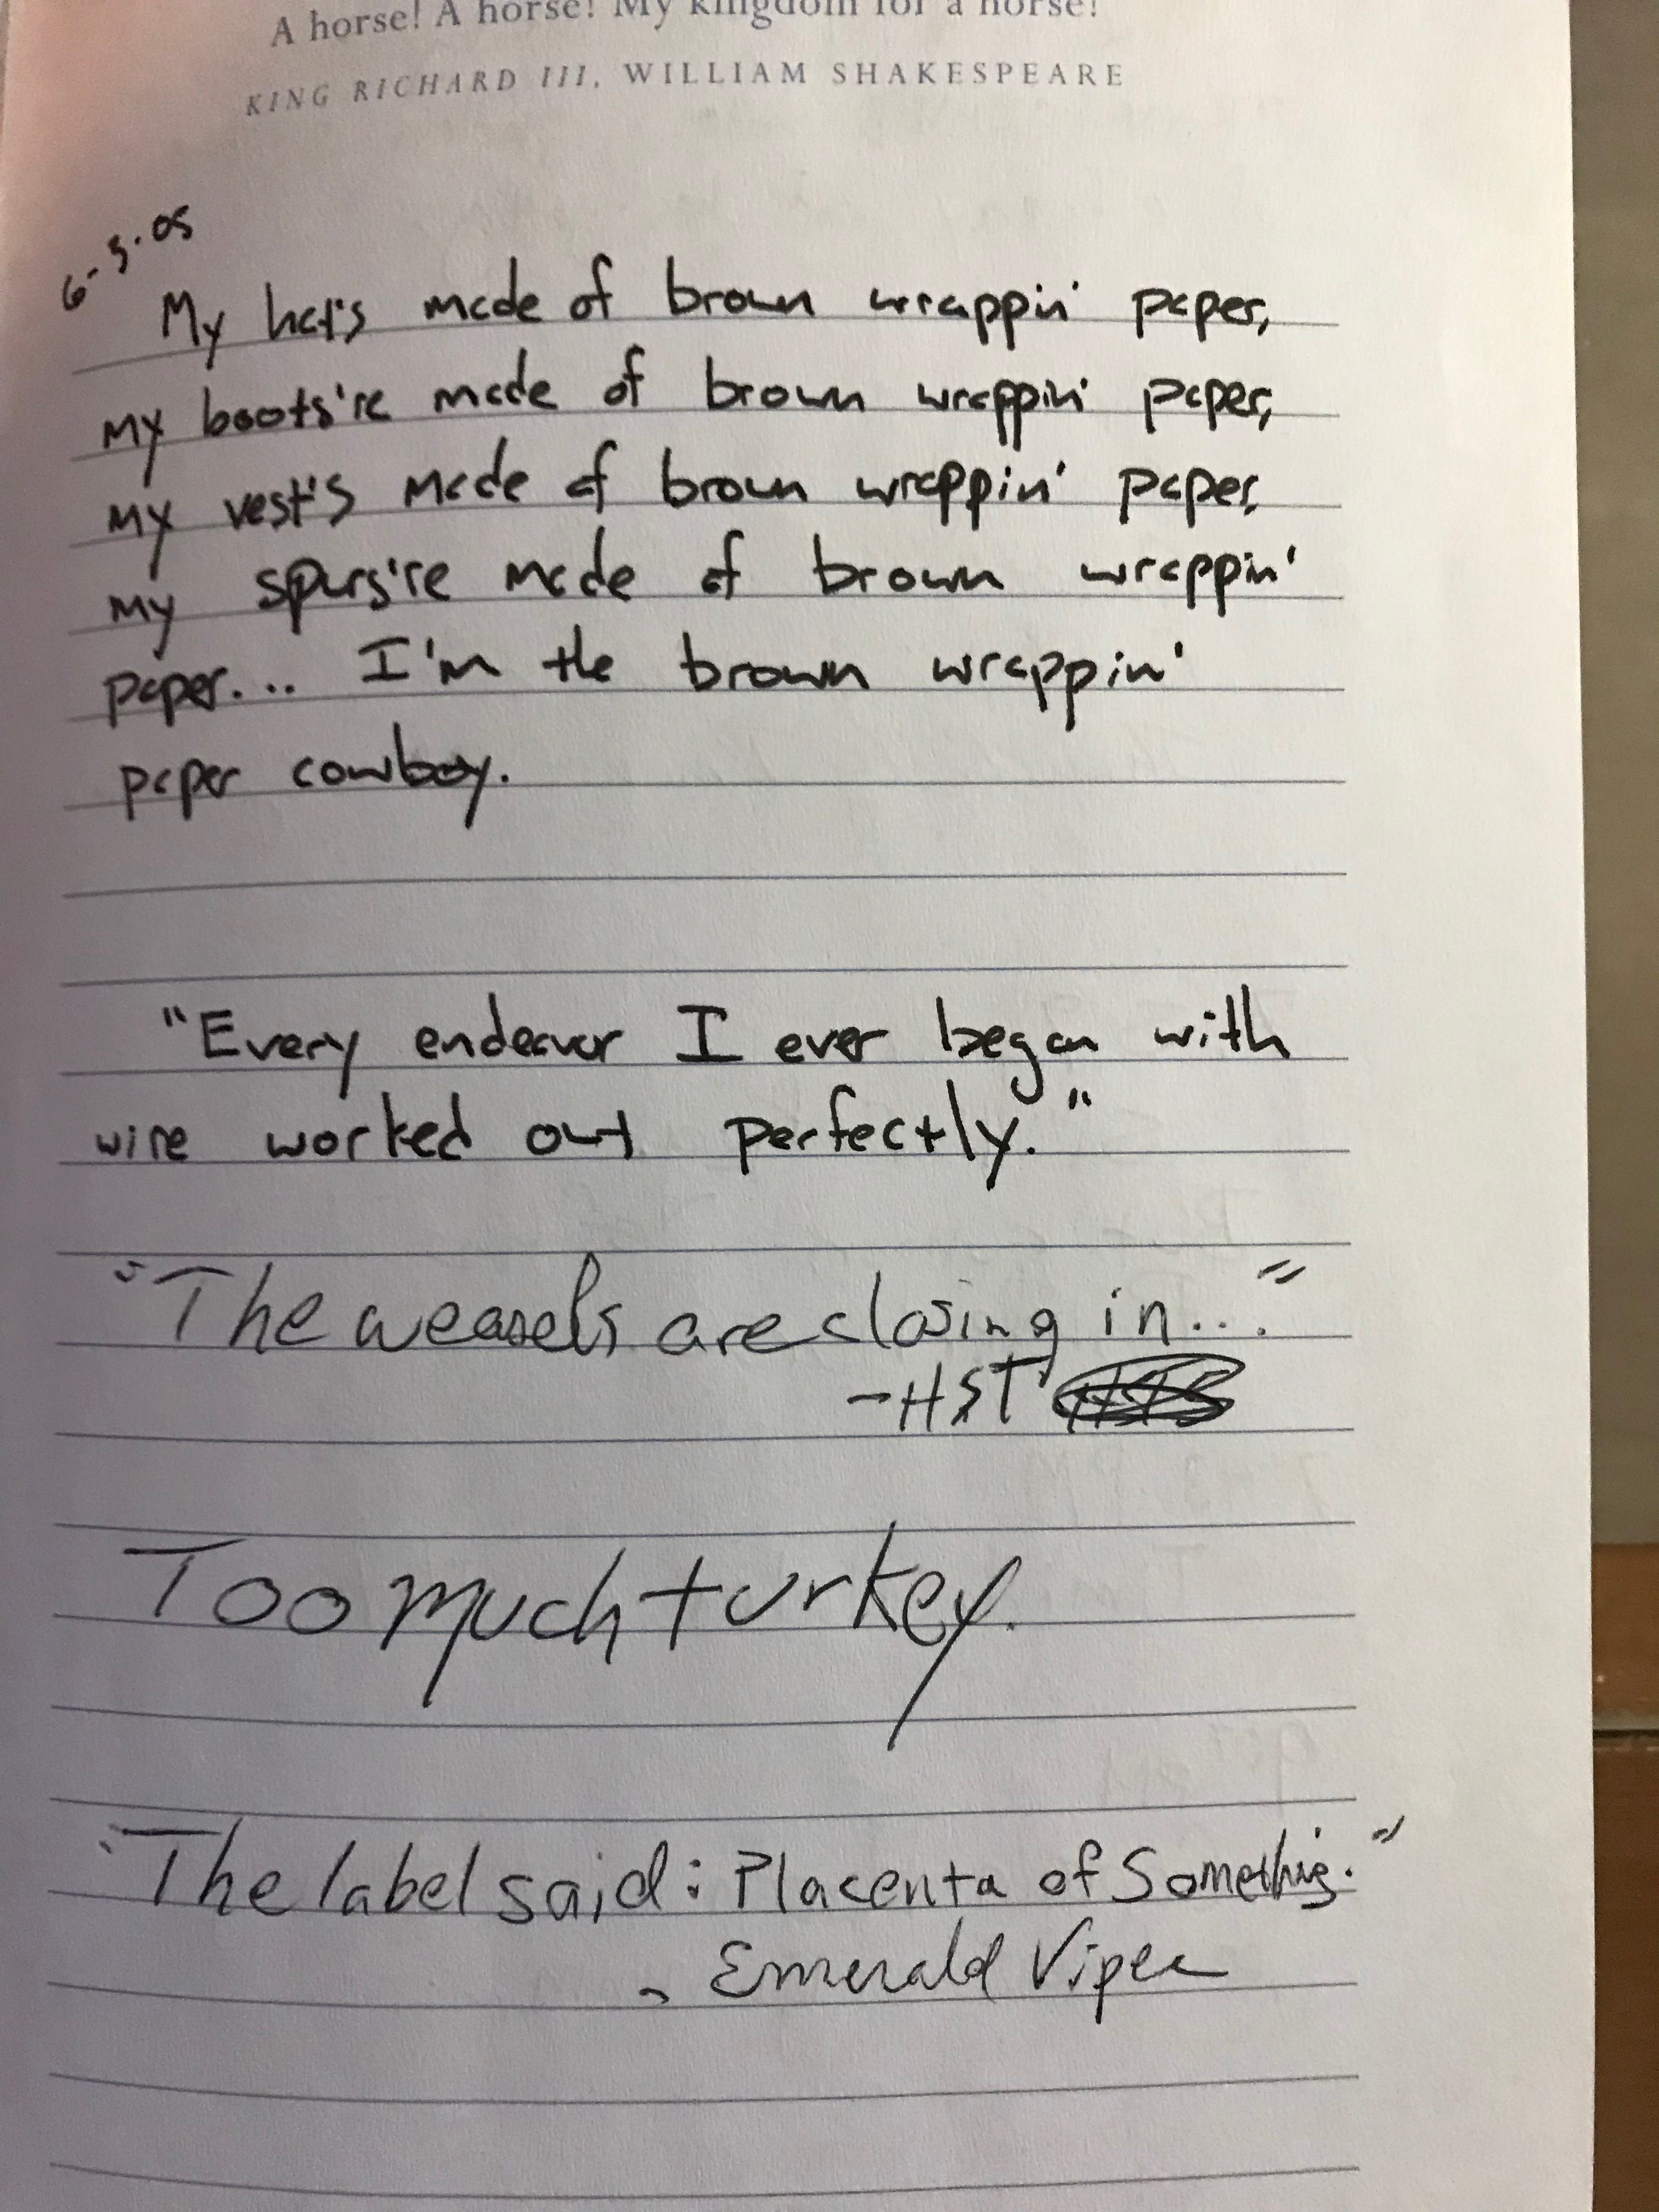 A horse! A horse! My kingdom for a horse!
KING RICHARD III, WILLIAM SHAKESPEARE
6-5-05
My hat's made of brown wrappin' paper,
my boots're made of brown wrappin' paper,
my vest's made of brown wrappin' paper,
my spurs're made of brown wrappin'
paper... I'm the brown wrappin'
paper cowboy.
"Every endeavor I ever began with
wire worked out perfectly."
"The weasels are closing in..."
-HST
Too much turkey.
"The label said: Placenta of Something."
- Emerald Viper